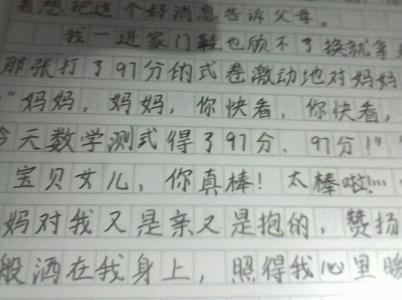 着想把这个好消息告诉父母。
我一进家门鞋也顾不了换就拿
那张打了97分的式卷激动地对妈妈
“妈妈，妈妈，你快看，你快看，
今天数学测式得了97分，97分！”“
宝贝女儿，你真棒！太棒啦！…
妈对我又是亲又是抱的，赞扬
般洒在我身上，照得我心里暖